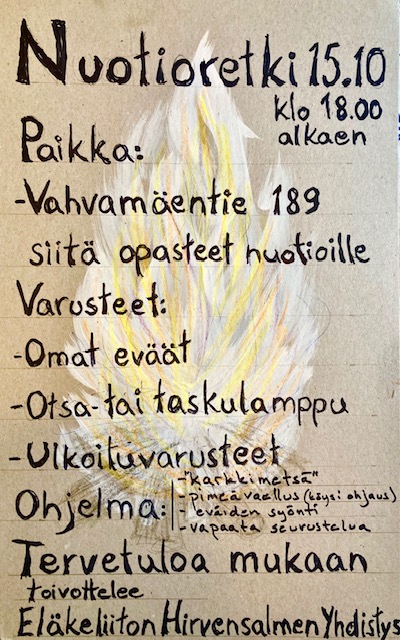 Nuotioretki 15.10
klo 18.00
alkaen
Paikka:
-Vahvamäentie 189
siitä opasteet nuotioille
Varusteet:
-Omat eväät
-Otsa-tai taskulamppu
-Ulkoiluvarusteet
Ohjelma:
-"karkkimetsä"
-pimeävaellus (köysi ohjaus)
-eväiden syönti
-vapaata seurustelua
Tervetuloa mukaan
toivottelee
Eläkeliiton Hirvensalmen Yhdistys